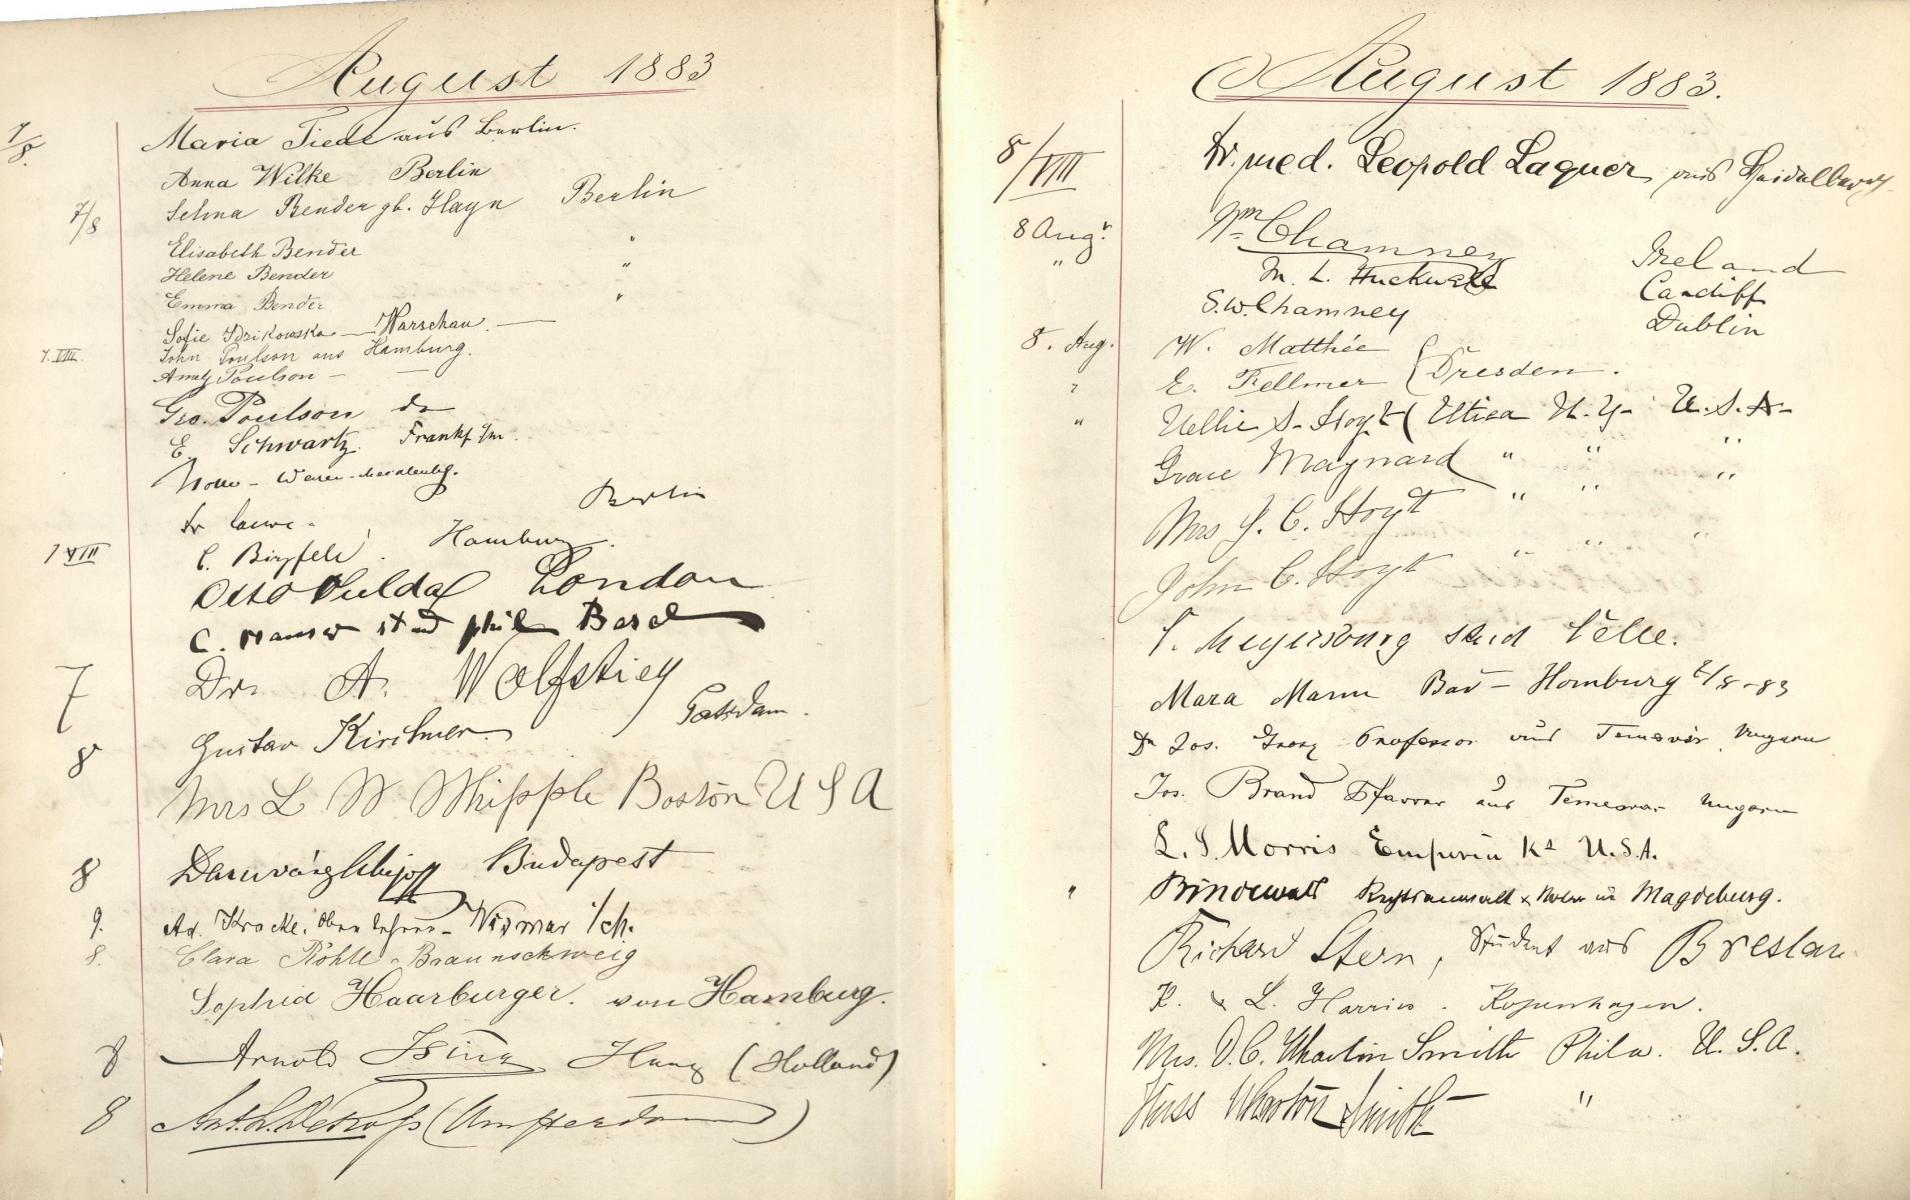 August 1883
7/8. Maria Tiede aus Berlin.
Anna Wilke Berlin
7/8 Selma Bender gb. Hayn Berlin
Elisabeth Bender "
Helene Bender "
Emma Bender "
Sofie Idzikowska — Warschau. —
7.VIII. John Poulson aus Hamburg.
Poulson — —
Geo. Poulson do
E. Schwartz. Frankf. a/m.
Dr Berlin
7 VIII C. Hamburg.
Otto London
C. stud phil Basel
7 Dr. A.
Gustav Kirchner Potsdam.
8 Mrs L W Whipple Boston U S A
8 Budapest
9. Ad. Kracke, Oberlehrer - Wismar i/M.
8. Clara Röhll - Braunschweig
Sophie Haarburger. von Hamburg.
8 — Arnold Ising Haag (Holland)
8 (Amsterdam)
August 1883.
8/VIII Dr. med. Leopold Laquer aus Heidelberg
8 Augt. Wm Chamney Ireland
" M. L. Huckwell Cardiff
S.W. Chamney Dublin
8. Aug. W. Matthée
" E. Fellmer { Dresden.
" Nellie S. Hoyt ( Utica N.Y. U.S.A.
Grace Maynard " " "
Mrs J. C. Hoyt " " "
John C. Hoyt " " "
Meyersburg stud Celle.
Mara Mann Bad - Homburg 8/8-83
Dr Jos. Professor aus Temesvár, Ungarn
Jos. Brand Pfarrer aus Temesvar Ungarn
L. S. Morris Emporia Ks U.S.A.
" Bindewald Rechtsanwalt & Notar in Magdeburg.
Richard Stern, Student aus Breslau
K. & L. Harries. Kopenhagen.
Mrs. D. C. Wharton Smith Phila. U. S. A.
Wharton Smith "